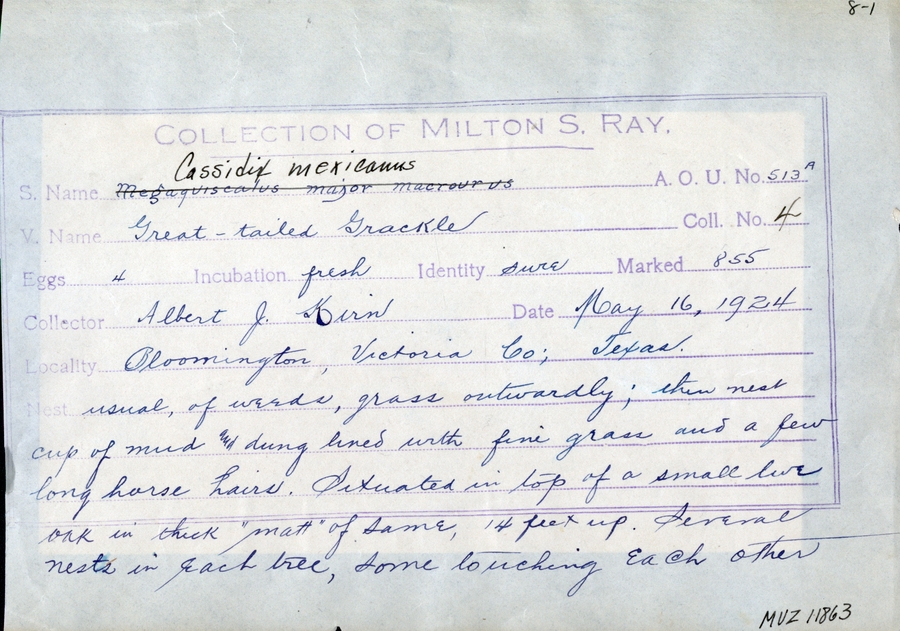 8-1
COLLECTION OF MILTON S. RAY.
Cassidix mexicanus
S. Name Megaquiscalus major macrourus A. O. U. No. 513A
V. Name Great-tailed Grackle Coll. No. 4
Eggs 4 Incubation fresh Identity sure Marked 855
Collector Albert J. Kirn Date May 16, 1924
Locality Bloomington, Victoria Co; Texas.
Nest usual, of weeds, grass outwardly; then nest
cup of mud and dung lined with fine grass and a few
long horse hairs. Situated in top of a small live
oak in thick "matt" of same, 14 feet up. Several
nests in each tree, some touching each other
MVZ 11863